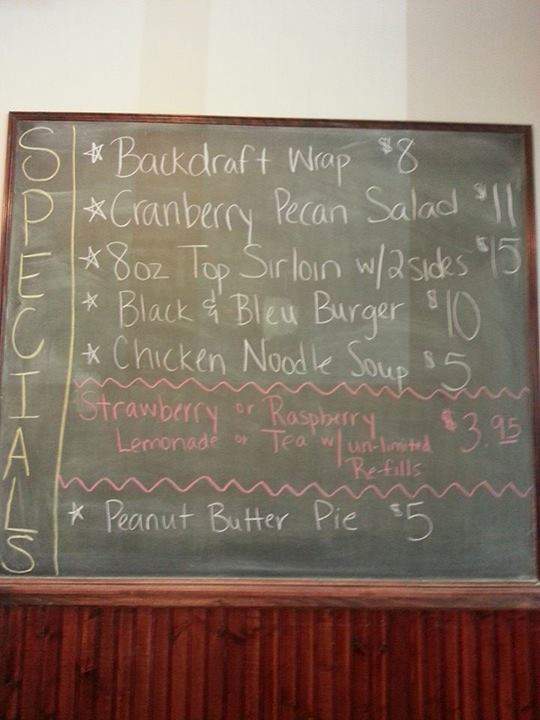 SPECIALS
☆ Backdraft Wrap $8
☆ Cranberry Pecan Salad $11
☆ 8oz Top Sirloin w/2sides $15
☆ Black & Bleu Burger $10
☆ Chicken Noodle Soup $5
Strawberry or Raspberry $3.95
Lemonade or Tea w/ un-limited
Re-fills
☆ Peanut Butter Pie $5